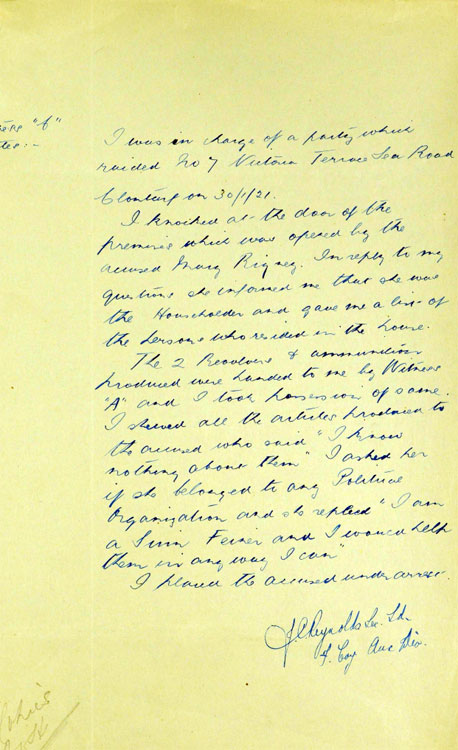 "C"
I was in charge of a party which
raided No 7 Victoria Terrace Sea Road
Clontarf on 30/1/21.
I knocked at the door of the
premises which was opened by the
accused Mary Rigney. In reply to my
questions she informed me that she was
the Householder and gave me a list of
the persons who resided in the house.
The 2 Revolvers & ammunition
produced were handed to me by Witness
"A" and I took possession of same.
I showed all the articles produced to
the accused who said "I know
nothing about them" I asked her
if she belonged to any Political
Organization and she replied "I am
a Sinn Feiner and I would help
them in any way I can"
I placed the accused under arrest.
J.C. Reynolds Sec. Ldr.
F. Coy Aux Div.